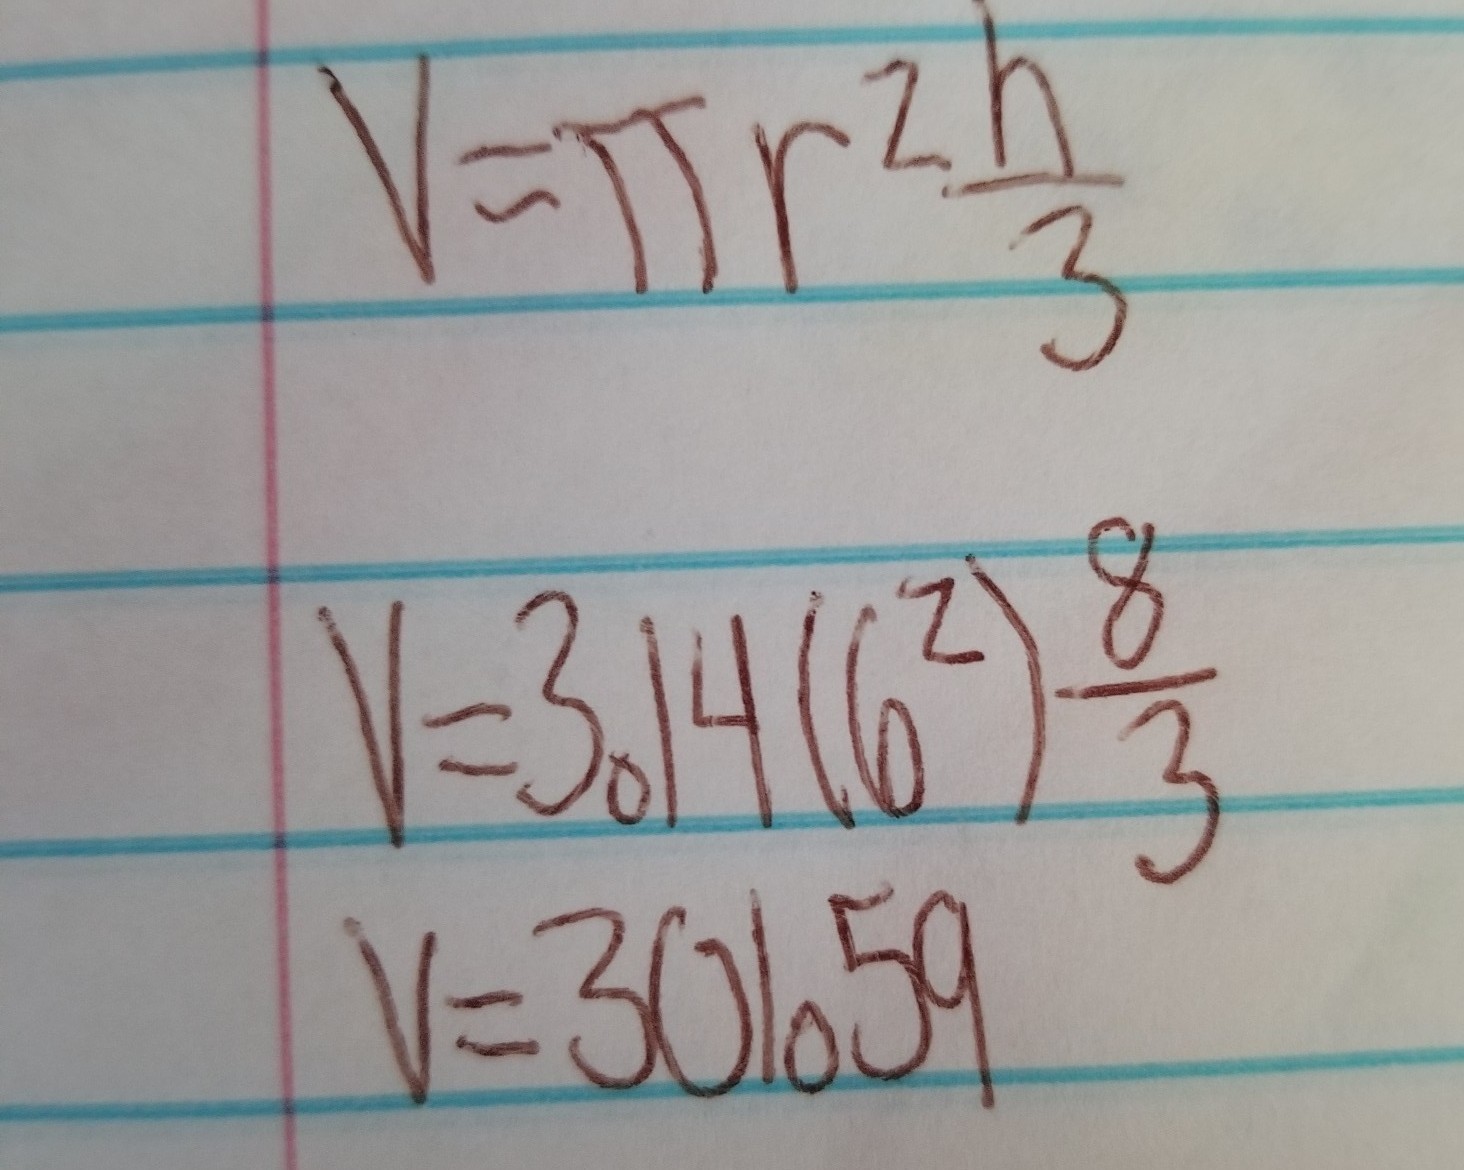 V=πr²h/3
V=3.14(6²)8/3
V=301.59